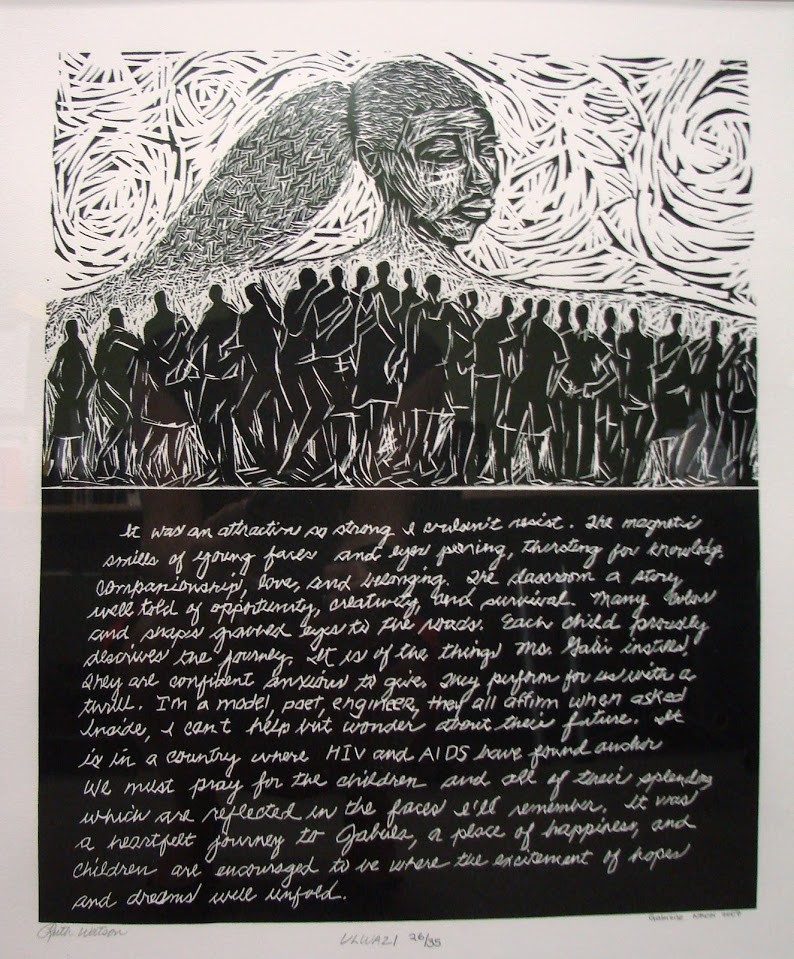 It was an attraction so strong I couldn't resist. The magnetic
smiles of young faces and eyes peering, thirsting for knowledge,
companionship, love, and belonging. The classroom a story
well told of opportunity, creativity, and survival. Many colors
and shapes eyes to the words. Each child proudly
describes the journey. It is of the things Ms. instills.
They are confident anxious to give. They perform for us with a
thrill. I'm a model, poet, engineer, they all affirm when asked
Inside, I can't help but wonder about their future. It
is in a country where HIV and AIDS have found anchor
We must pray for the children and all of their splendor
which are reflected in the faces I'll remember. It was
a heartfelt journey to , a place of happiness, and
children are encouraged to be where the excitement of hopes
and dreams will unfold.
Ruth Watson
ULWAZI 26/35